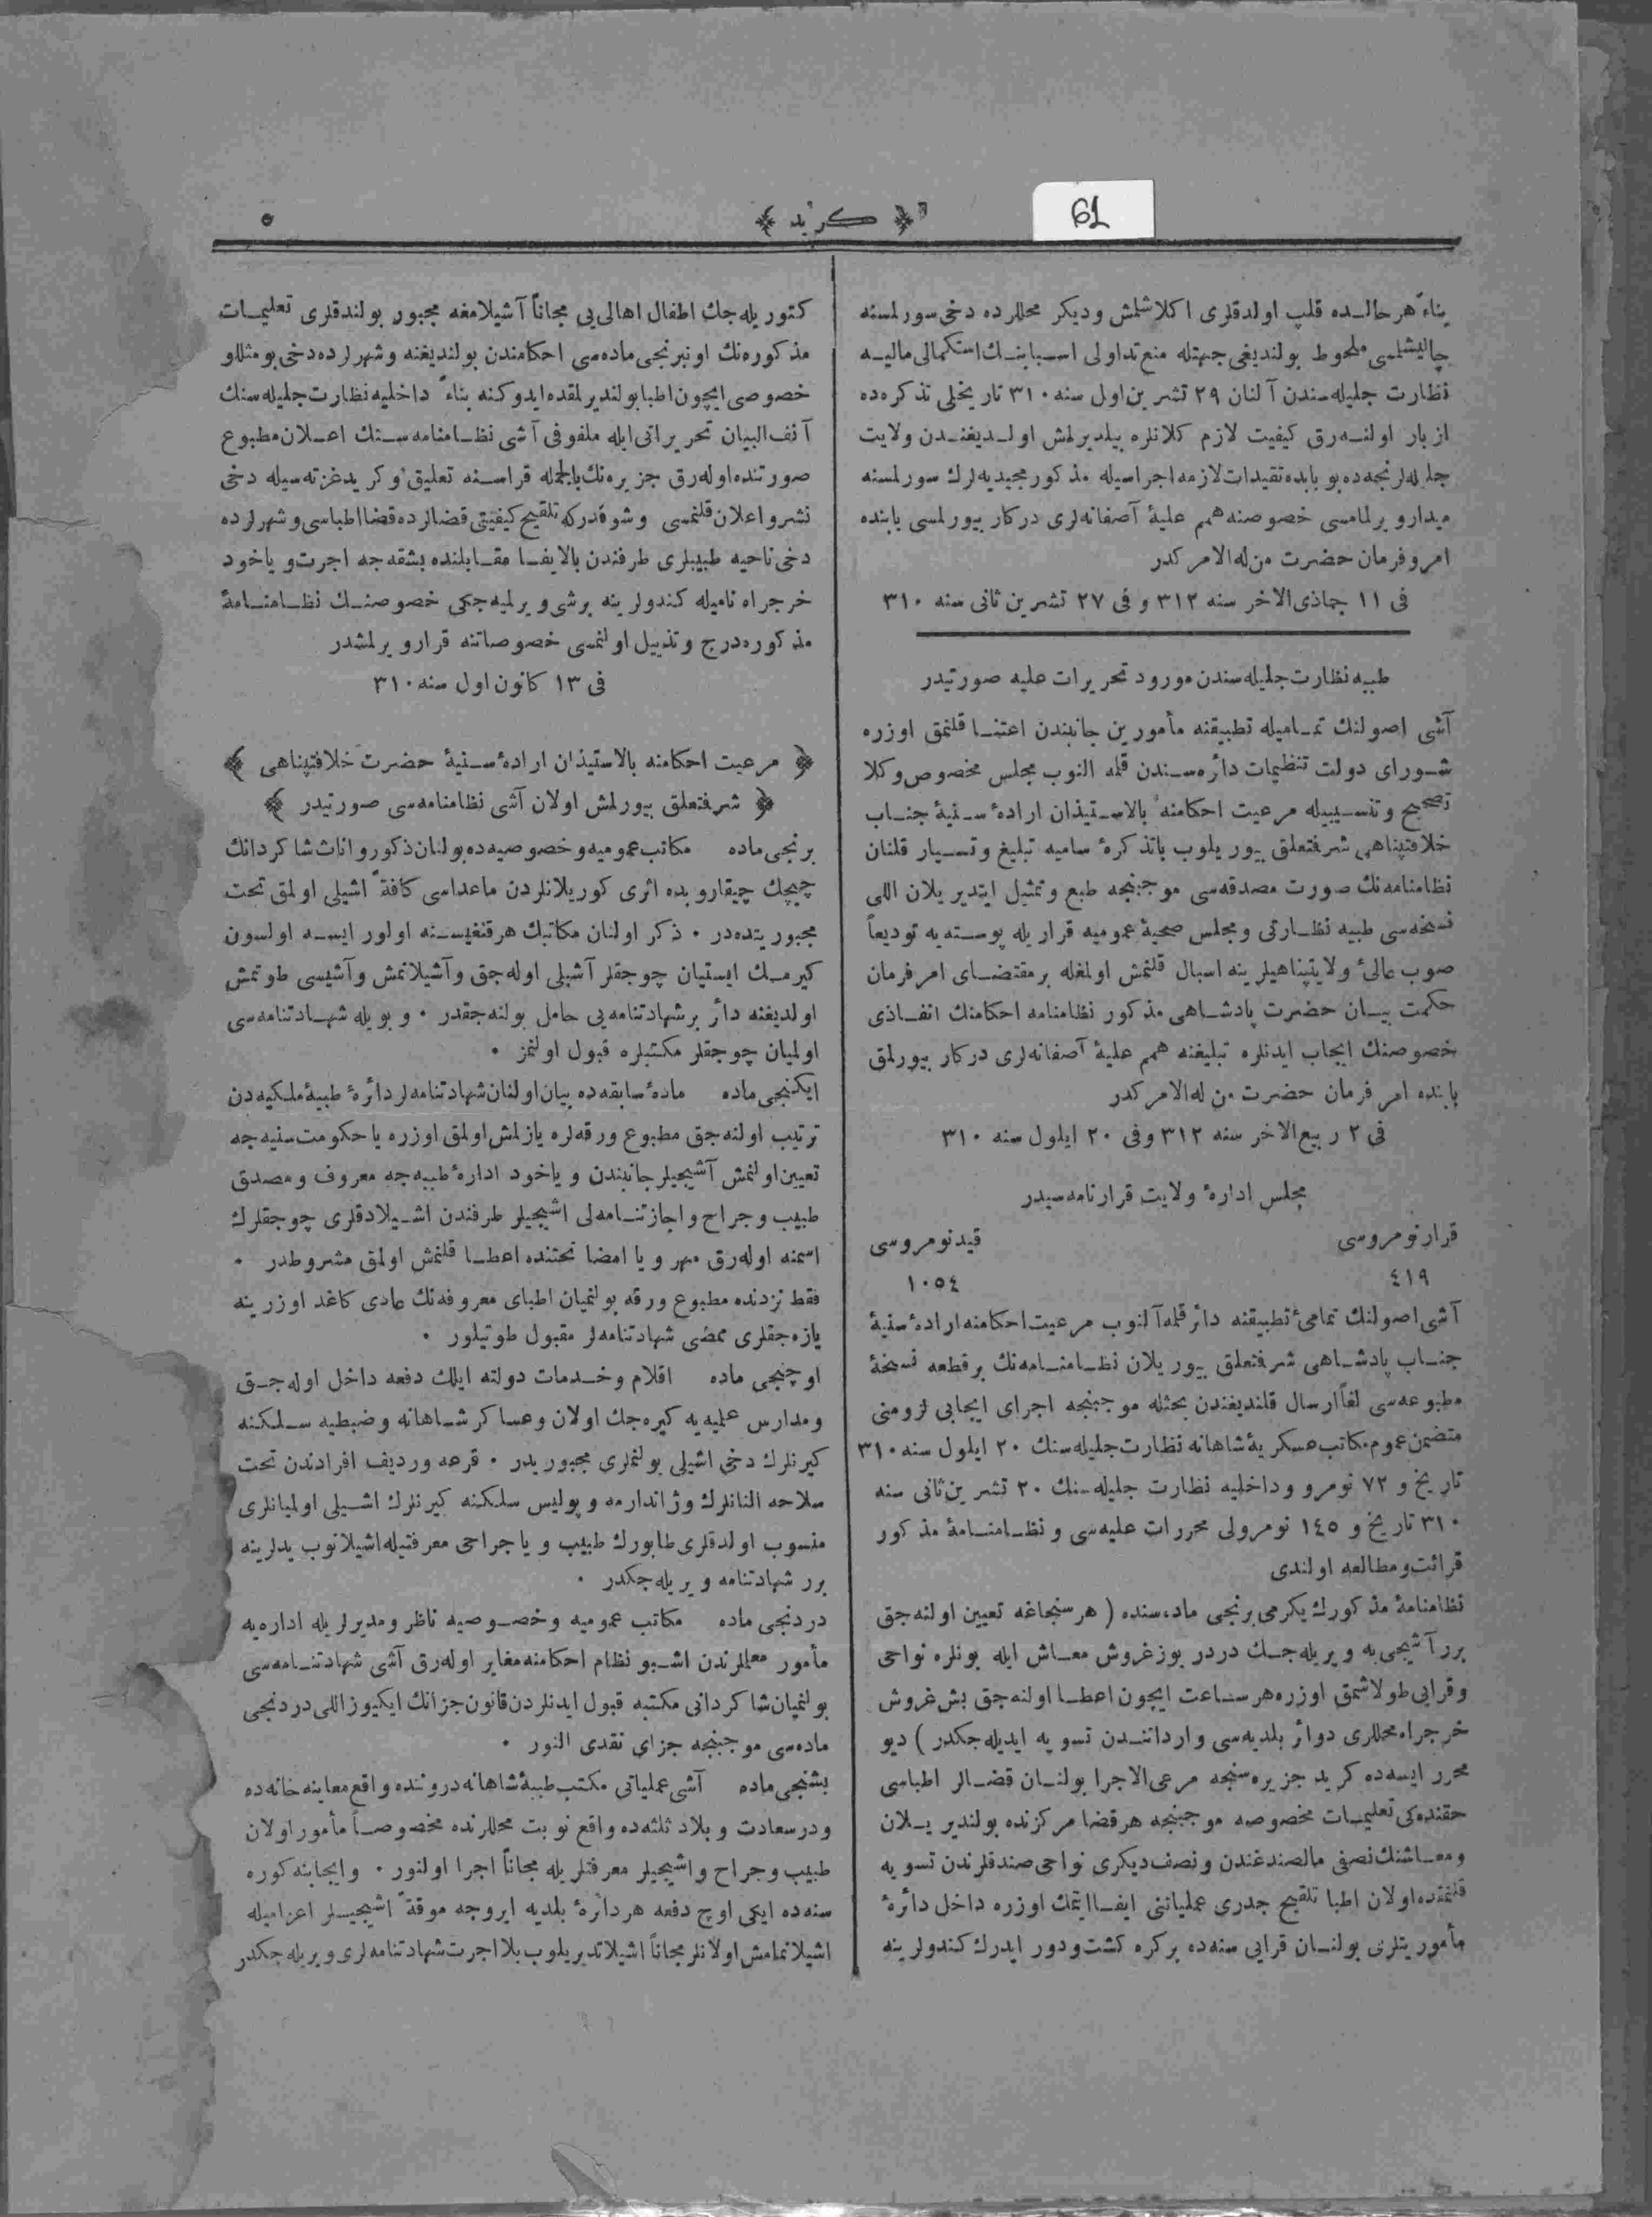 61
﴿ كريد ﴾
٥
بناءً هر حالده قلب اولدقلرى اكلاشلمش و ديكر محللرده دخى سورلمسنه
چاليشلمسى ملحوظ بولنديغى جهتله منع تداولى اسبابنك استكمالى ماليه
نظارت جليله سندن آلنان ٢٩ تشرين اول سنه ٣١٠ تاريخلى تذكره ده
ازبار اولنه رق كيفيت لازم كلانلره بيلديرلمش اولديغندن ولايت
جليله لرنجه ده بو بابده تقيدات لازمه اجراسيله مذكور مجيديه لرك سورلمسنه
ميدان ويرلمامسى خصوصنه همم عليهٔ آصفانه لرى دركار بيورلمسى بابنده
امر و فرمان حضرت من له الامركدر
فى ١١ جماذى الاخر سنه ٣١٢ و فى ٢٧ تشرين ثانى سنه ٣١٠
طبيه نظارت جليله سندن مورود تحريرات عليه صورتيدر
آشى اصولنك تماميله تطبيقنه مأمورين جانبندن اعتنا قلنمق اوزره
شوراى دولت تنظيمات دائره سندن قلمه النوب مجلس مخصوص وكلا
تصحيح و تنسيبيله مرعيت احكامنه بالاستيذان ارادهٔ سنيهٔ جناب
خلافتپناهى شرفتعلق بيوريلوب باتذكرهٔ ساميه تبليغ و تسيار قلنان
نظامنامه نك صورت مصدقه سى موجبنجه طبع و تمثيل ايتديريلان اللى
نسخه سى طبيه نظارتى و مجلس صحيهٔ عموميه قراريله پوسته يه توديعاً
صوب عالئ ولايتپناهيلرينه اسبال قلنمش اولمغله بر مقتضاى امر فرمان
حكمت بيان حضرت پادشاهى مذكور نظامنامه احكامنك انفاذى
خصوصنك ايجاب ايدنلره تبليغنه همم عليهٔ آصفانه لرى دركار بيورلمق
بابنده امر فرمان حضرت من له الامركدر
فى ٢ ربيع الاخر سنه ٣١٢ وفى ٢٠ ايلول سنه ٣١٠
مجلس ادارهٔ ولايت قرارنامه سيدر
قرار نومروسى قيد نومروسى
٤١٩ ١٠٥٤
آشى اصولنك تمامئ تطبيقنه دائر قلمه آلنوب مرعيت احكامنه ارادهٔ سنيهٔ
جناب پادشاهى شرفتعلق بيوريلان نظامنامه نك بر قطعه نسخهٔ
مطبوعه سى لفاً ارسال قلنديغندن بحثله موجبنجه اجراى ايجابى لزومنى
متضمن عموم مكاتب عسكريهٔ شاهانه نظارت جليله سنك ٢٠ ايلول سنه ٣١٠
تاريخ و ٧٢ نومرو و داخليه نظارت جليله سنك ٢٠ تشرين ثانى سنه
٣١٠ تاريخ و ١٤٥ نومرولى محررات عليه سى و نظامنامهٔ مذكور
قرائت و مطالعه اولندى
نظامنامهٔ مذكورك يكرمى برنجى ماده سنده ( هر سنجاغه تعيين اولنه جق
برر آشيجى يه ويريله جك دردر يوز غروش معاش ايله بونلره نواحى
و قرايى طولاشمق اوزره هر ساعت ايچون اعطا اولنه جق بش غروش
خرجراه محللرى دوائر بلديه سى وارداتندن تسويه ايديله جكدر ) ديو
محرر ايسه ده كريد جزيره سنجه مرعى الاجرا بولنان قضالر اطباسى
حقنده كى تعليمات مخصوصه موجبنجه هر قضا مركزنده بولنديريلان
و معاشنك نصفى مال صندغندن و نصف ديكرى نواحى صندقلرندن تسويه
قلنمقده اولان اطبا تلقيح جدرى عملياتنى ايفا ايتمك اوزره داخل دائرهٔ
مأموريتلرى بولنان قرايى سنه ده بر كره كشت و دور ايدرك كندولرينه
كتوريله جك اطفال اهالى يى مجاناً آشيلامغه مجبور بولندقلرى تعليمات
مذكوره نك اون برنجى ماده سى احكامندن بولنديغنه و شهرلرده دخى بو مثللو
خصوصى ايچون اطبا بولنديرلمقده ايدوكنه بناءً داخليه نظارت جليله سنك
آنف البيان تحريراتى ايله ملفوفى آشى نظامنامه سنك اعلان مطبوع
صورتنده اوله رق جزيره نك بالجمله قراسنه تعليق و كريد غزته سيله دخى
نشر و اعلان قلنمسى و شو قدر كه تلقيح كيفيتى قضالرده قضا اطباسى و شهرلرده
دخى ناحيه طبيبلرى طرفندن بالايفا مقابلنده بشقه جه اجرت و ياخود
خرجراه ناميله كندولرينه بر شى ويرلميه جكى خصوصنك نظامنامهٔ
مذكوره درج و تذييل اولنمسى خصوصاتنه قرار ويرلمشدر
فى ١٣ كانون اول سنه ٣١٠
﴿ مرعيت احكامنه بالاستيذان ارادهٔ سنيهٔ حضرت خلافتپناهى ﴾
﴿ شرفتعلق بيورلمش اولان آشى نظامنامه سى صورتيدر ﴾
برنجى ماده مكاتب عموميه و خصوصيه ده بولنان ذكور و اناث شاكردانك
چيچك چيقاروبده اثرى كوريلانلردن ماعداسى كافةً اشيلى اولمق تحت
مجبوريتده در ٠ ذكر اولنان مكاتبك هر قنغيسنه اولور ايسه اولسون
كيرمك ايستيان چوجقلر آشيلى اوله جق و آشيلانمش و آشيسى طوتمش
اولديغنه دائر بر شهادتنامه يى حامل بولنه جقدر ٠ و بويله شهادتنامه سى
اولميان چوجقلر مكتبلره قبول اولنمز ٠
ايكنجى ماده مادهٔ سابقه ده بيان اولنان شهادتنامه لر دائرهٔ طبيهٔ ملكيه دن
ترتيب اولنه جق مطبوع ورقه لره يازلمش اولمق اوزره يا حكومت سنيه جه
تعيين اولنمش آشيجيلر جانبندن و ياخود ادارهٔ طبيه جه معروف و مصدق
طبيب و جراح و اجازتنامه لى اشيجيلر طرفندن اشيلادقلرى چوجقلرك
اسمنه اوله رق مهر و يا امضا تحتنده اعطا قلنمش اولمق مشروطدر ٠
فقط نزدنده مطبوع ورقه بولنميان اطباى معروفه نك عادى كاغد اوزرينه
يازه جقلرى ممضى شهادتنامه لر مقبول طوتيلور ٠
اوچنجى ماده اقلام و خدمات دولته ايلك دفعه داخل اوله جق
و مدارس علميه يه كيره جك اولان و عساكر شاهانه و ضبطيه سلكنه
كيرنلرك دخى اشيلى بولنملرى مجبوريدر ٠ قرعه و رديف افرادندن تحت
سلاحه النانلرك و ژاندارمه و پوليس سلكنه كيرنلرك اشيلى اولميانلرى
منسوب اولدقلرى طابورك طبيب و يا جراحى معرفتيله اشيلانوب يدلرينه
برر شهادتنامه ويريله جكدر ٠
دردنجى ماده مكاتب عموميه و خصوصيه ناظر و مديرلريله اداره يه
مأمور معلملرندن اشبو نظام احكامنه مغاير اوله رق آشى شهادتنامه سى
بولنميان شاكردانى مكتبه قبول ايدنلردن قانون جزانك ايكيوز اللى دردنجى
ماده سى موجبنجه جزاى نقدى النور ٠
بشنجى ماده آشى عملياتى مكتب طبيهٔ شاهانه دروننده واقع معاينه خانه ده
و درسعادت و بلاد ثلثه ده واقع نوبت محللرنده مخصوصاً مأمور اولان
طبيب و جراح و اشيجيلر معرفتلريله مجاناً اجرا اولنور ٠ و ايجابنه كوره
سنه ده ايكى اوچ دفعه هر دائرهٔ بلديه ايروجه موقةً اشيجيلر اعزاميله
اشيلانمامش اولانلر مجاناً اشيلاتديريلوب بلا اجرت شهادتنامه لرى ويريله جكدر